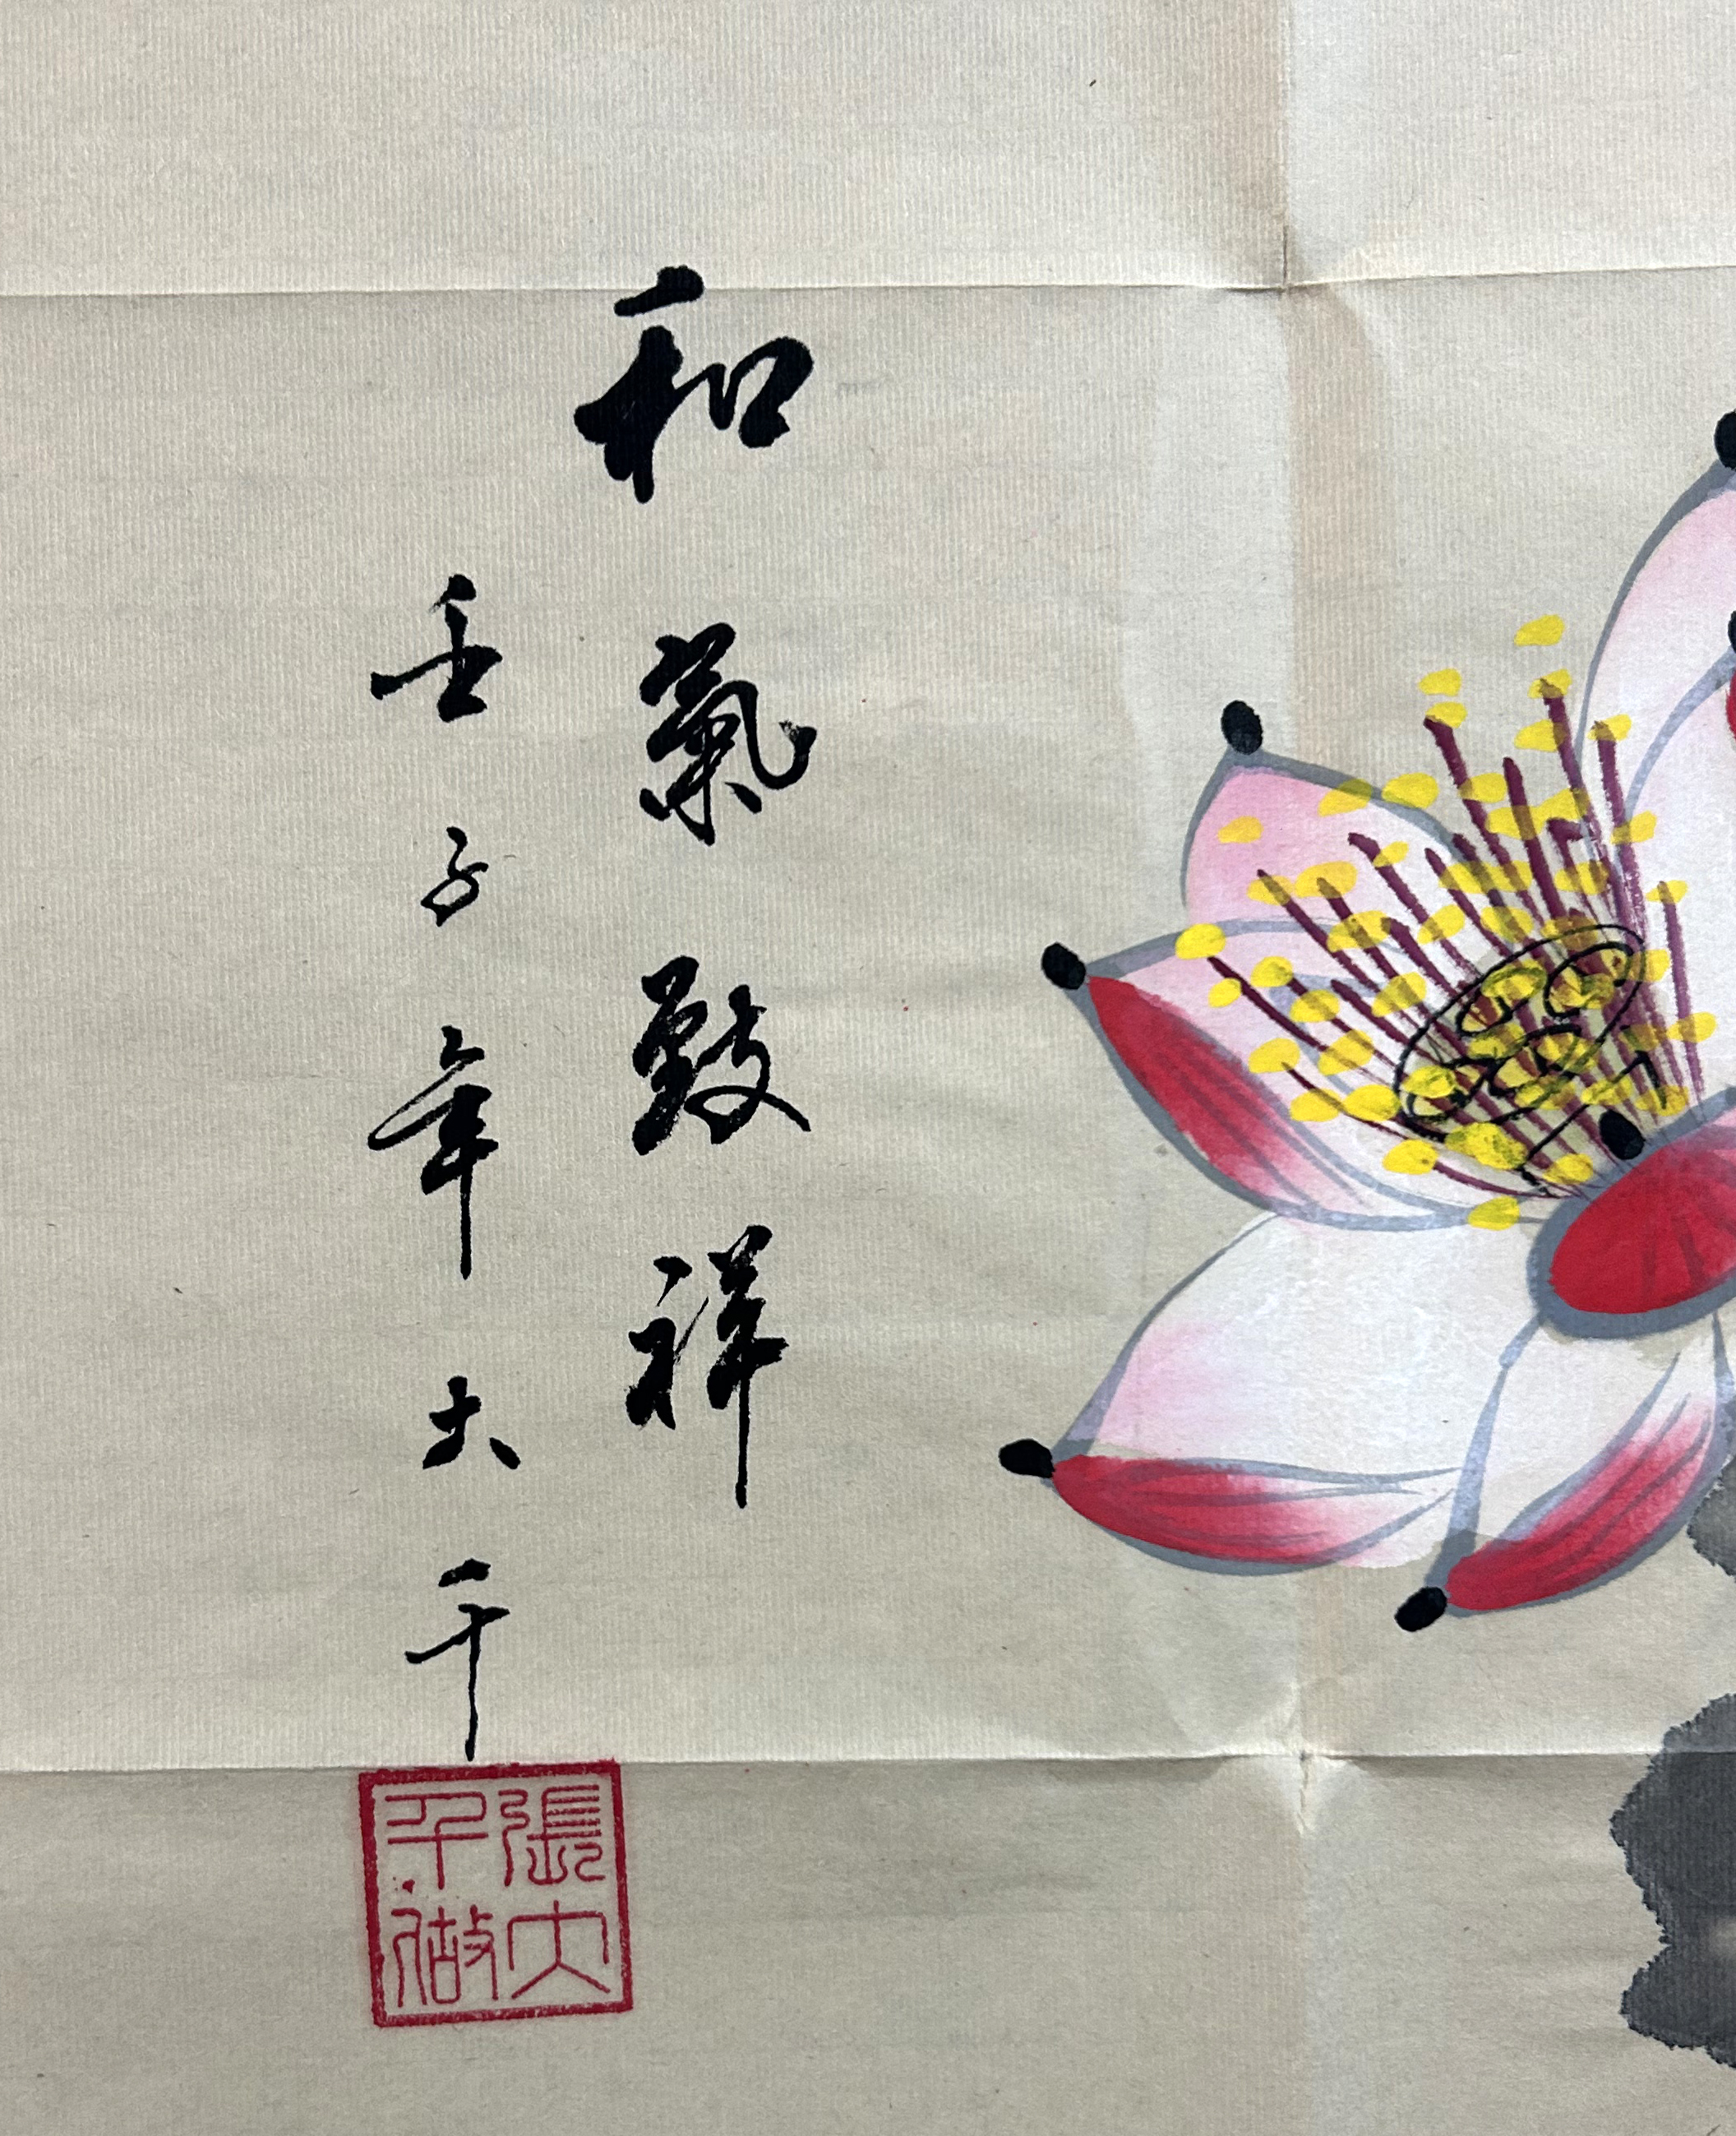 和氣致祥
壬子年大千
張大
千做